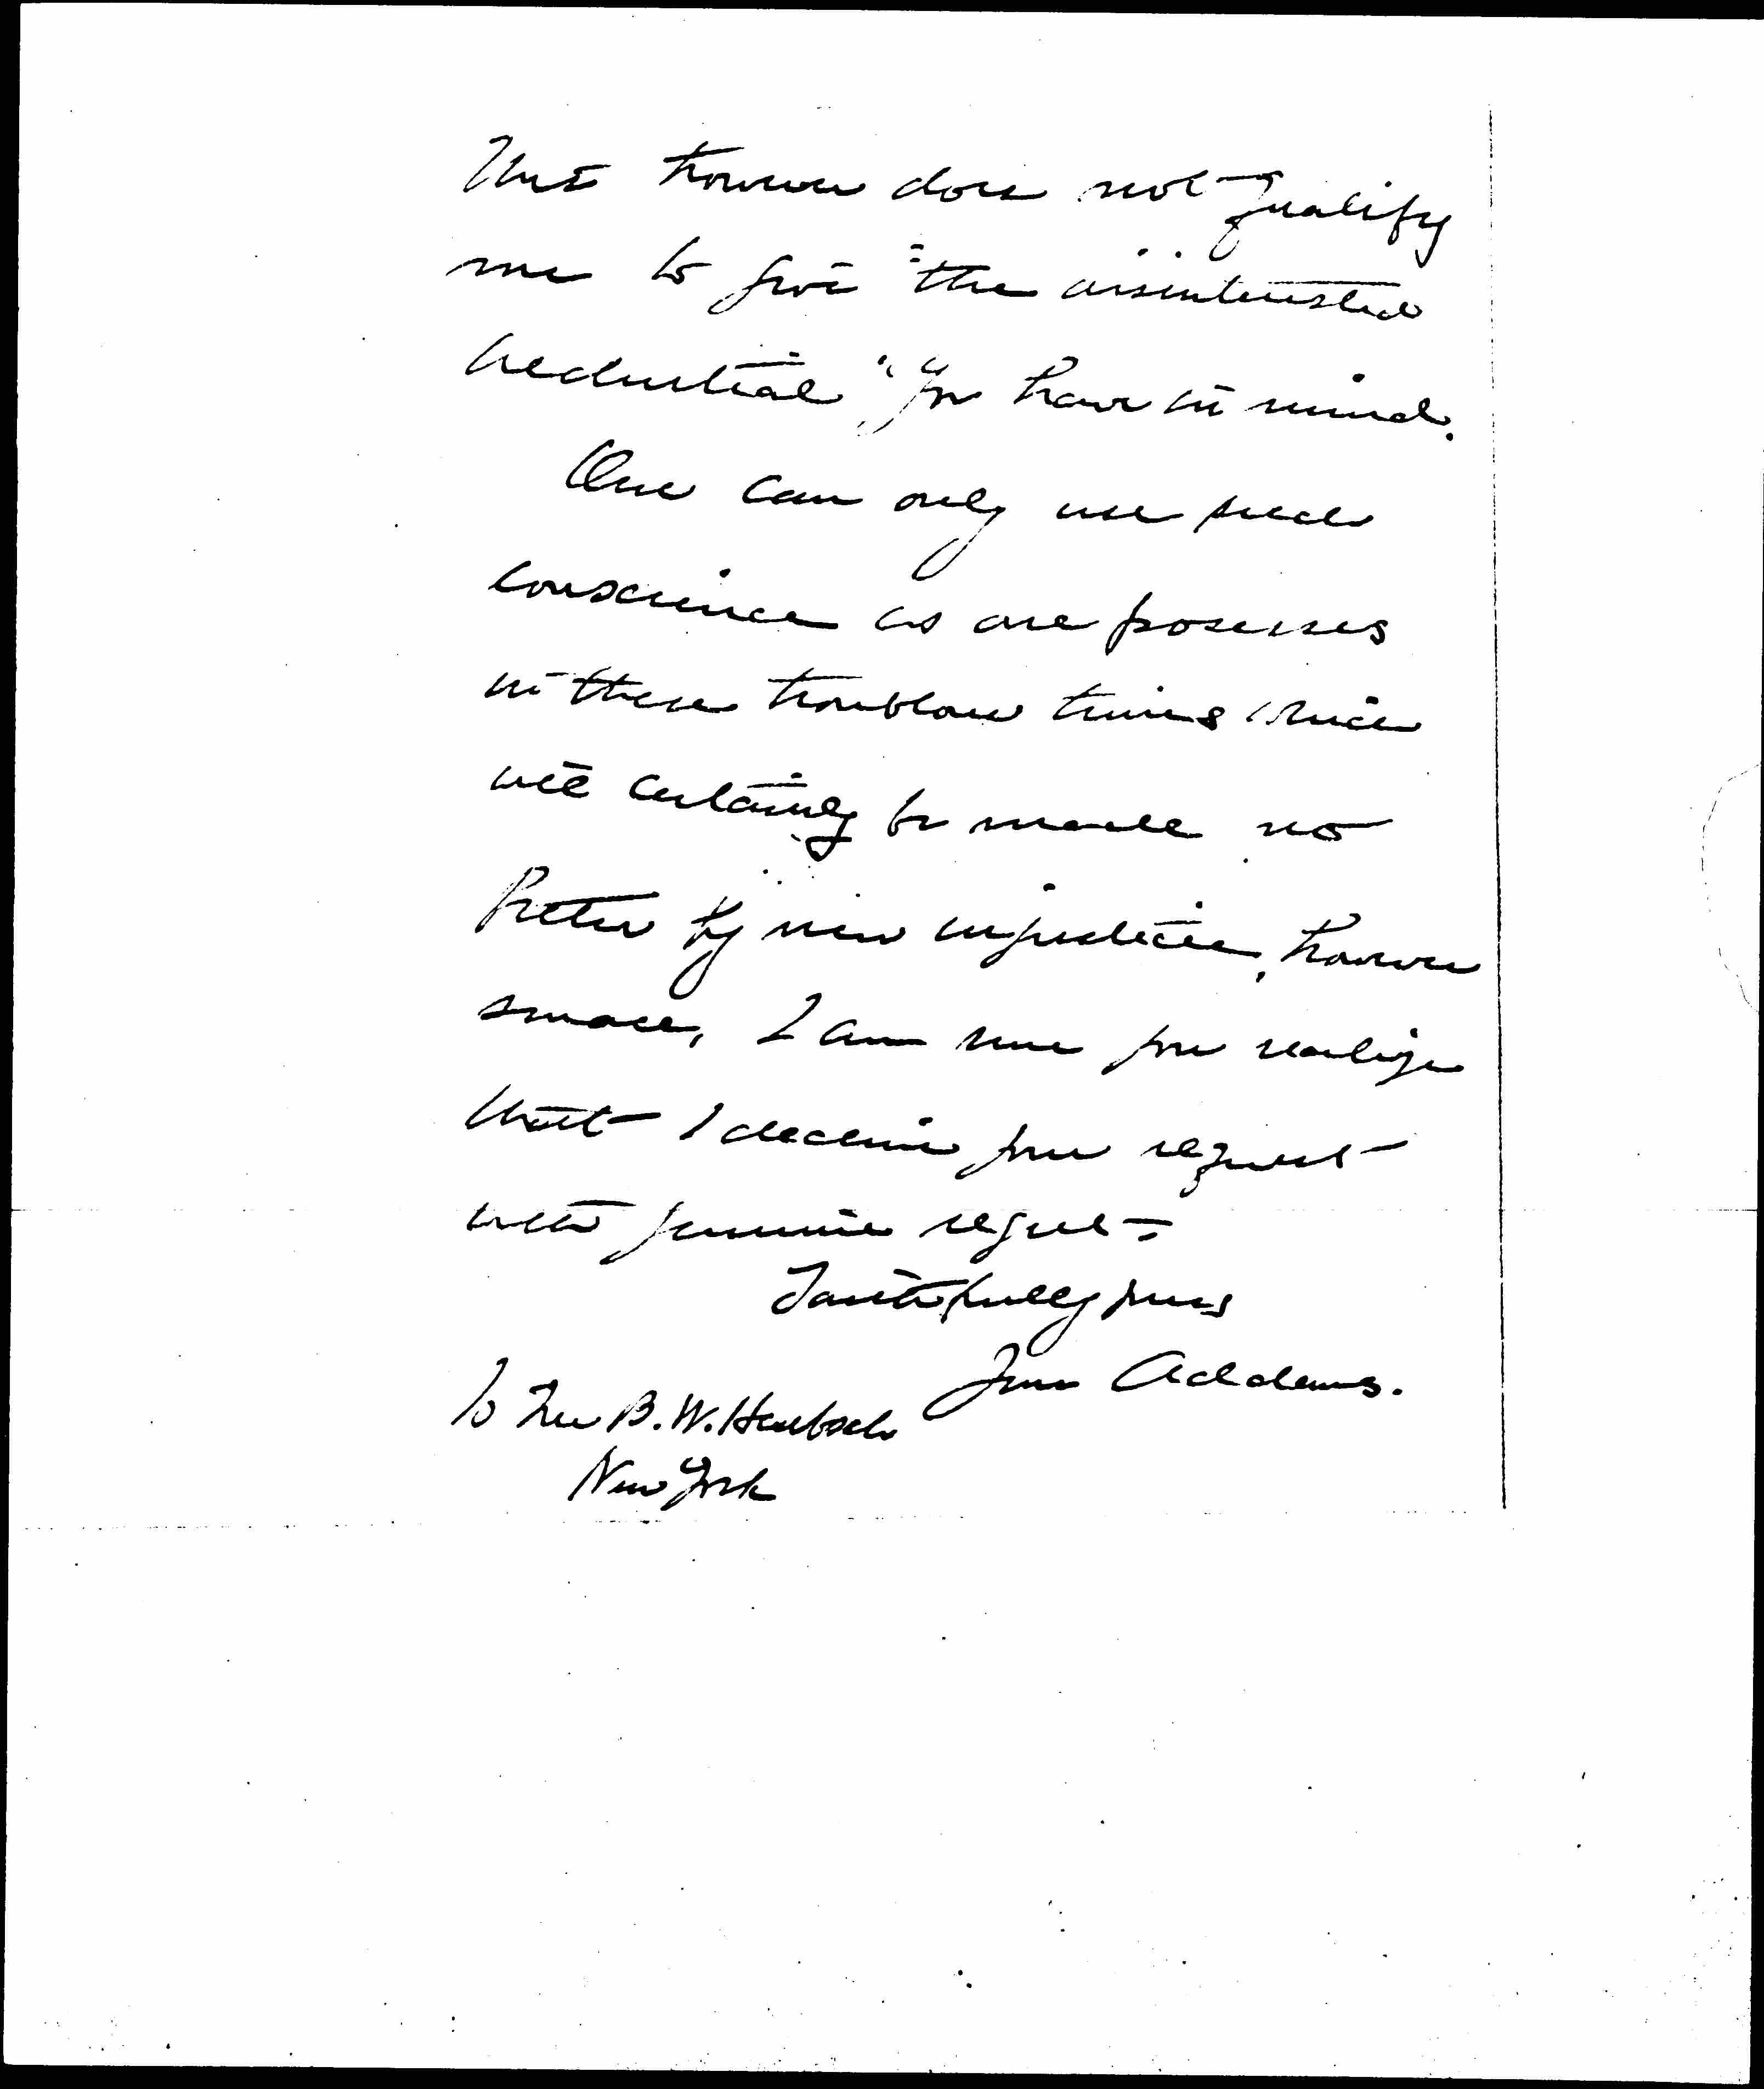 This however does not qualify
me to give "the disinterested
credential" you have in mind.
One can only use such
conscience as one possesses
in these troublous times which
will certainly be made no
better by new injustice, however
small, I am sure you realize
that I decline your request
with genuine regret.
Faithfully yours
Jane Addams.
To Mr B. W. Huebsch
New York